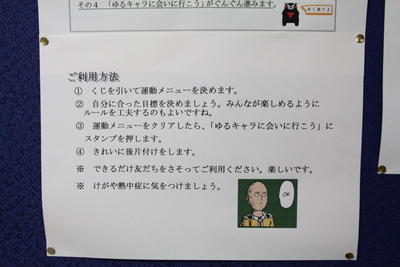 その４　「ゆるキャラに会いに行こう」がぐんぐん進みます。
ご利用方法
①　くじを引いて運動メニューを決めます。
②　自分に合った目標を決めましょう。みんなが楽しめるように
ルールを工夫するのもよいですね。
③　運動メニューをクリアしたら、「ゆるキャラに会いに行こう」に
スタンプを押します。
④　きれいに後片付けをします。
※　できるだけ友だちをさそってご利用ください。楽しいです。
※　けがや熱中症に気をつけましょう。
OK